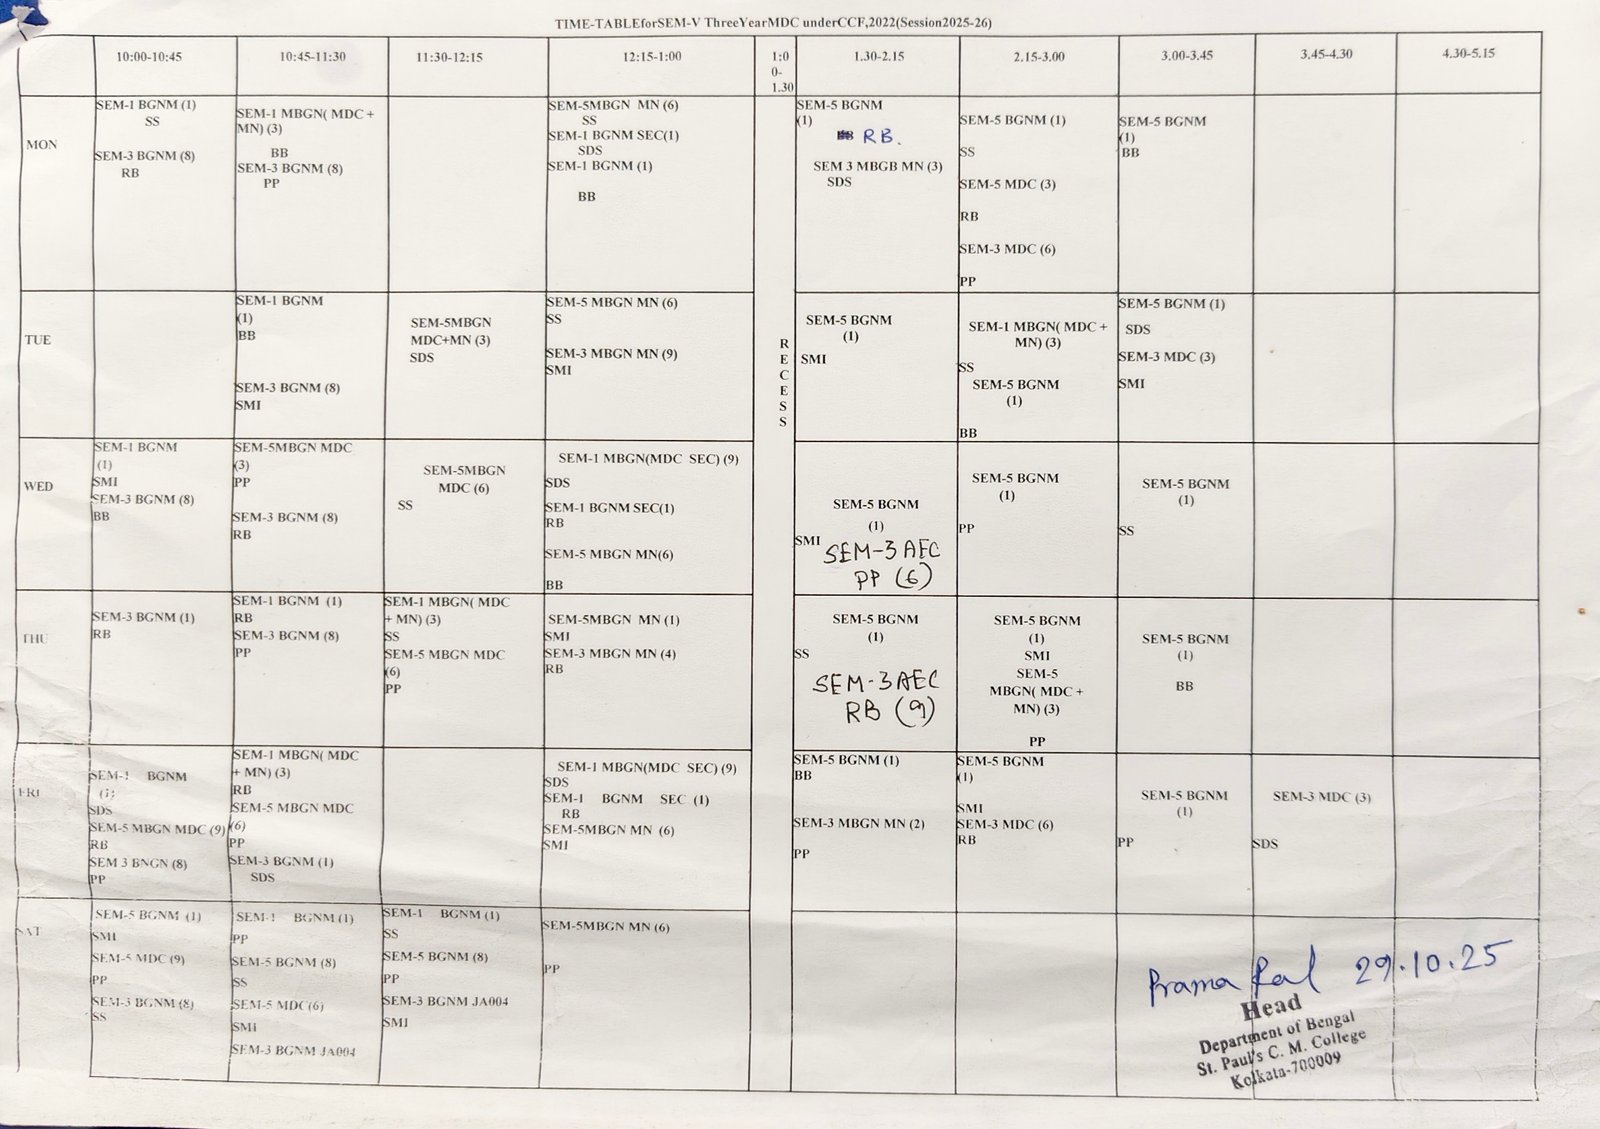 TIME-TABLEforSEM-V ThreeYearMDC underCCF,2022(Session2025-26)
10:00-10:45
10:45-11:30
11:30-12:15
12:15-1:00
1:0
0-
1.30
1.30-2.15
2.15-3.00
3.00-3.45
3.45-4.30
4.30-5.15
MON
SEM-1 BGNM (1)
SS
SEM-3 BGNM (8)
RB
SEM-1 MBGN( MDC +
MN) (3)
BB
SEM-3 BGNM (8)
PP
SEM-5MBGN MN (6)
SS
SEM-1 BGNM SEC(1)
SDS
SEM-1 BGNM (1)
BB
SEM-5 BGNM
(1)
RB.
SEM 3 MBGB MN (3)
SDS
SEM-5 BGNM (1)
SS
SEM-5 MDC (3)
RB
SEM-3 MDC (6)
PP
SEM-5 BGNM
(1)
BB
TUE
SEM-1 BGNM
(1)
BB
SEM-3 BGNM (8)
SMI
SEM-5MBGN
MDC+MN (3)
SDS
SEM-5 MBGN MN (6)
SS
SEM-3 MBGN MN (9)
SMI
R
E
C
E
S
S
SEM-5 BGNM
(1)
SMI
SEM-1 MBGN( MDC +
MN) (3)
SS
SEM-5 BGNM
(1)
BB
SEM-5 BGNM (1)
SDS
SEM-3 MDC (3)
SMI
WED
SEM-1 BGNM
(1)
SMI
SEM-3 BGNM (8)
BB
SEM-5MBGN MDC
(3)
PP
SEM-3 BGNM (8)
RB
SEM-5MBGN
MDC (6)
SS
SEM-1 MBGN(MDC SEC) (9)
SDS
SEM-1 BGNM SEC(1)
RB
SEM-5 MBGN MN(6)
BB
SEM-5 BGNM
(1)
SMI
SEM-3 AEC
PP (6)
SEM-5 BGNM
(1)
PP
SEM-5 BGNM
(1)
SS
THU
SEM-3 BGNM (1)
RB
SEM-1 BGNM (1)
RB
SEM-3 BGNM (8)
PP
SEM-1 MBGN( MDC
+ MN) (3)
SS
SEM-5 MBGN MDC
(6)
PP
SEM-5MBGN MN (1)
SMI
SEM-3 MBGN MN (4)
RB
SEM-5 BGNM
(1)
SS
SEM-3 AEC
RB (9)
SEM-5 BGNM
(1)
SMI
SEM-5
MBGN( MDC +
MN) (3)
PP
SEM-5 BGNM
(1)
BB
FRI
SEM-1 BGNM
(1)
SDS
SEM-5 MBGN MDC (9)
RB
SEM 3 BNGN (8)
PP
SEM-1 MBGN( MDC
+ MN) (3)
RB
SEM-5 MBGN MDC
(6)
PP
SEM-3 BGNM (1)
SDS
SEM-1 MBGN(MDC SEC) (9)
SDS
SEM-1 BGNM SEC (1)
RB
SEM-5MBGN MN (6)
SMI
SEM-5 BGNM (1)
BB
SEM-3 MBGN MN (2)
PP
SEM-5 BGNM
(1)
SMI
SEM-3 MDC (6)
RB
SEM-5 BGNM
(1)
PP
SEM-3 MDC (3)
SDS
SAT
SEM-5 BGNM (1)
SMI
SEM-5 MDC (9)
PP
SEM-3 BGNM (8)
SS
SEM-1 BGNM (1)
PP
SEM-5 BGNM (8)
SS
SEM-5 MDC(6)
SMI
SEM-3 BGNM JA004
SEM-1 BGNM (1)
SS
SEM-5 BGNM (8)
PP
SEM-3 BGNM JA004
SMI
SEM-5MBGN MN (6)
PP
29.10.25
Head
Department of Bengal
St. Paul's C. M. College
Kolkata-700009